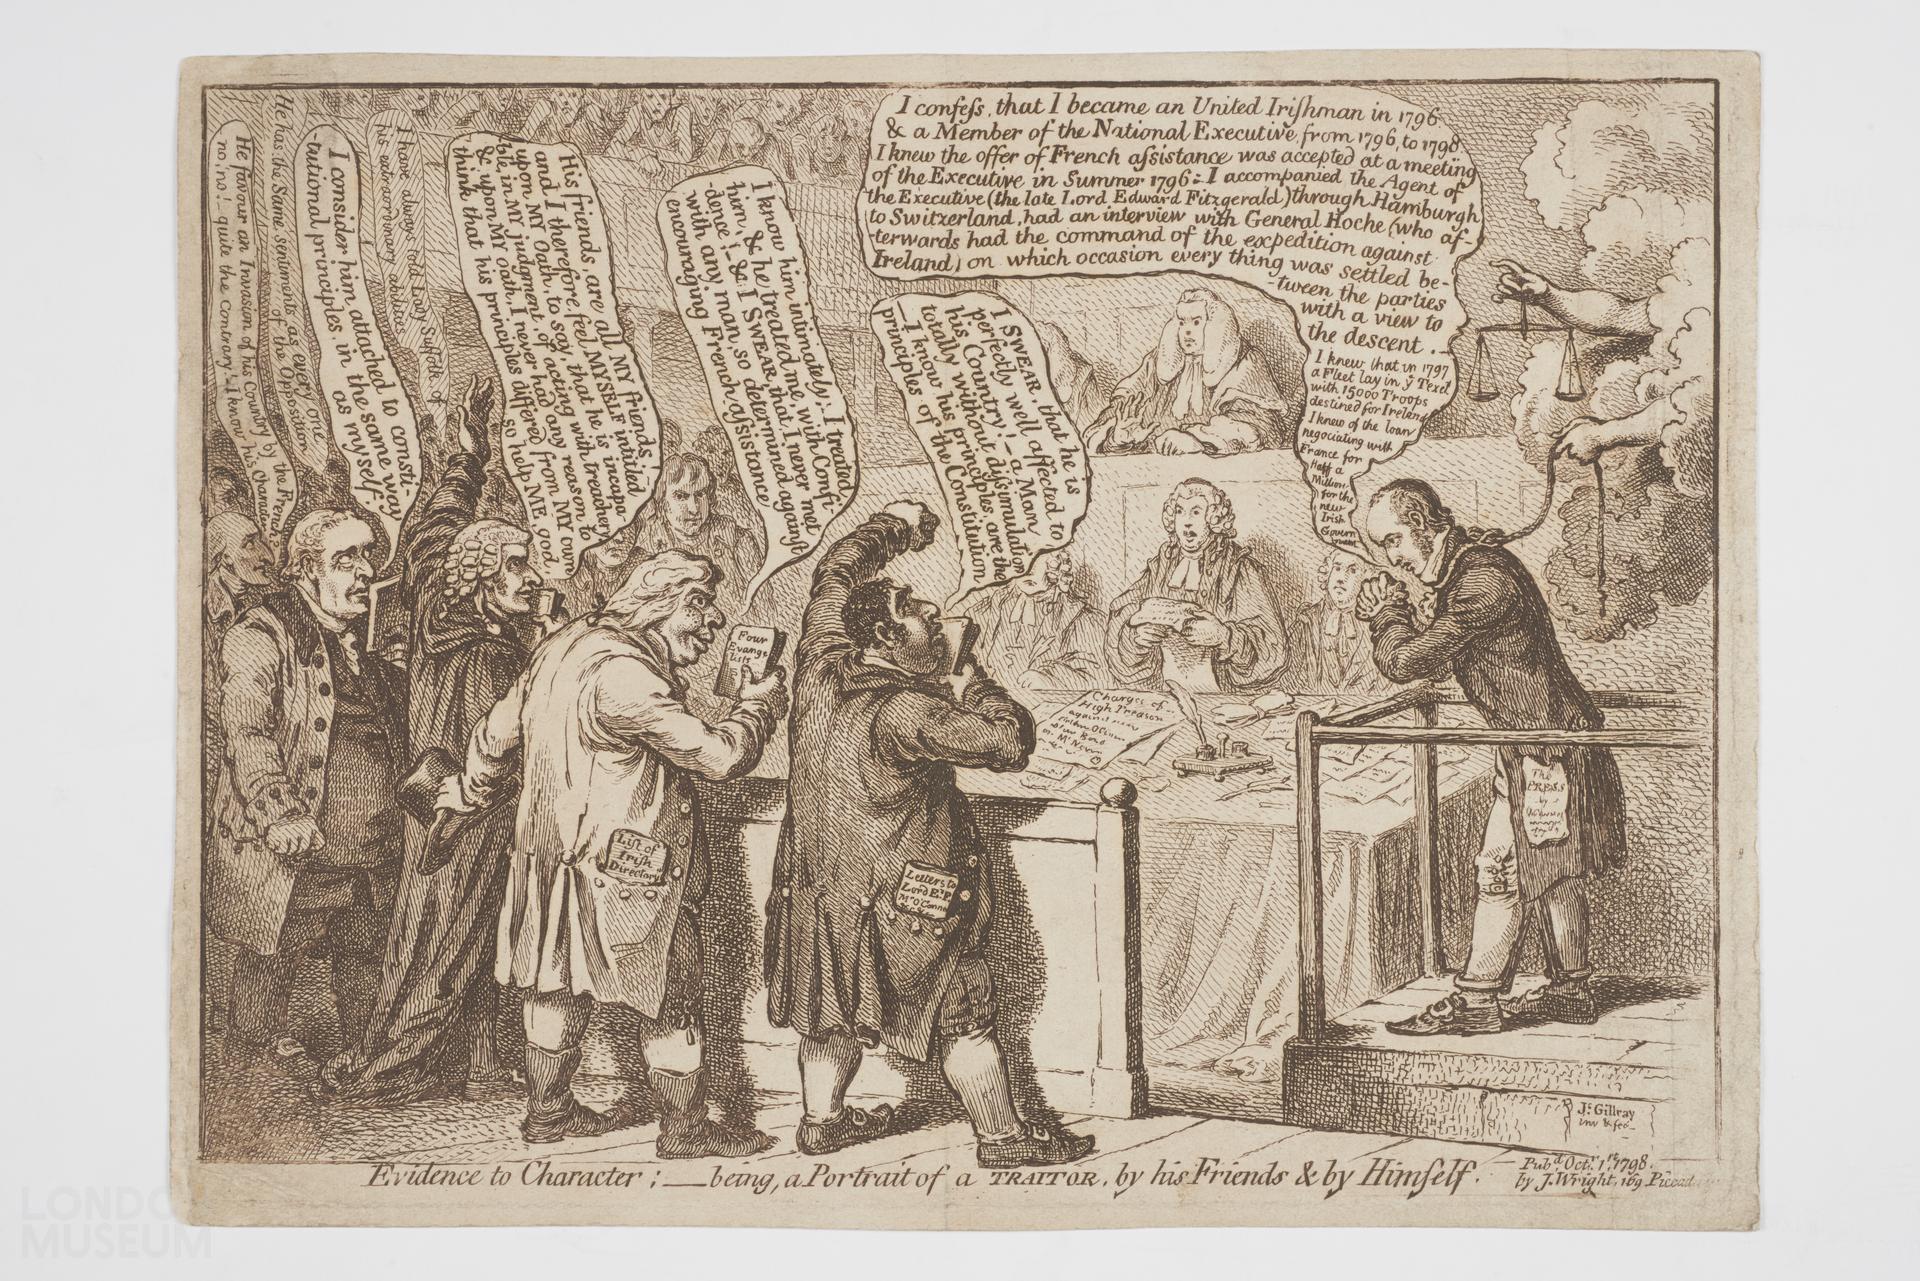 He favour an Invasion of his Country by the French?
no, no! quite the Contrary! I know his Character!
He has the Same sentiments as every one
of the Opposition
I consider him attached to consti-
-tutional principles, in the same way
as myself.
I have always told Lady Suffolk of
his extraordinary abilities
His friends, are all MY friends,
and I therefore, feel MYSELF intitled
upon MY Oath, to say, that he is incapa
ble, in MY judgment, of acting with treachery
& upon MY Oath, I never had any reason to
think that his principles differed from MY own
so help ME. god.
I know him intimately; I treated
him, & he treated me, with Confi-
-dence! - & I SWEAR, that I never met
with any man, so determined against
encouraging French assistance
I SWEAR, that he is
perfectly well affected to
his Country! - a Man
totally without dyssimulation
- I know his principles are the
principles of the Constitution
I confess, that I became an United Irishman in 1796
& a Member of the National Executive, from 1796, to 1798
I knew the offer of French assistance was accepted at a meeting
of the Executive in Summer 1796: I accompanied the Agent of
the Executive (the late Lord Edward Fitzgerald) through Hamburgh
to Switzerland, had an interview with General Hoche (who af-
-terwards had the command of the expedition against
Ireland) on which occasion every thing was settled be-
-tween the parties
with a view to
the descent. -
I knew that in 1797
a Fleet lay in ye Texel
with 15000 Troops
destined for Ireland
I knew of the loan
negociating with
France for
Half a
Million
for the
new
Irish
Govern
ment
Four
Evange
lists
List of
Irish
Directory
Letters to
Lord E. F.
Mr O'Connor
Charges of
High Treason
against
The
PRESS
by
Js Gillray
inv & fec
Evidence to Character; — being, a Portrait of a TRAITOR, by his Friends & by Himself.
Pubd Octr 1st 1798.
by J. Wright, 169 Piccad
LONDON
MUSEUM